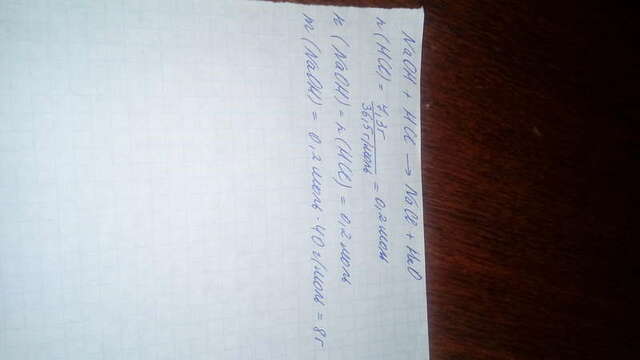 NaOH + HCl → NaCl + H2O
n(HCl) = 7,3г / 36,5г/моль = 0,2 моль
n(NaOH) = n(HCl) = 0,2 моль
m(NaOH) = 0,2 моль · 40 г/моль = 8г